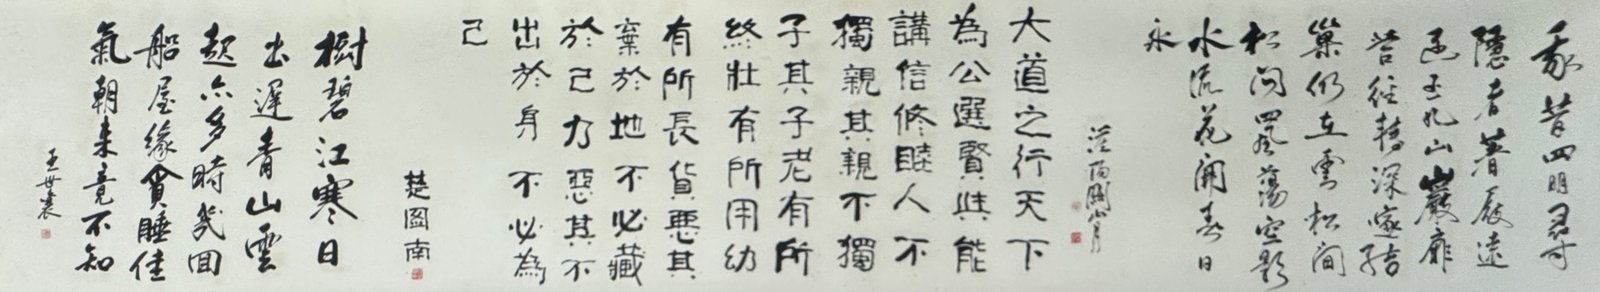 我昔四明尋
隱者著屐遠
玉几山巖扉
苔徑轉深邃結
巢仍在雲松間
松间風蕩空影
水流花開春日
永
關山月
大道之行天下
為公選賢與能
講信修睦人不
獨親其親不獨
子其子老有所
終壯有所用幼
有所長貨惡其
棄於地不必藏
於己力惡其不
出於身不必為
己
楚圖南
樹碧江寒日
出遲青山雲
起亦多時幾回
船屋緣貪睡佳
氣朝来竟不知
王世襄